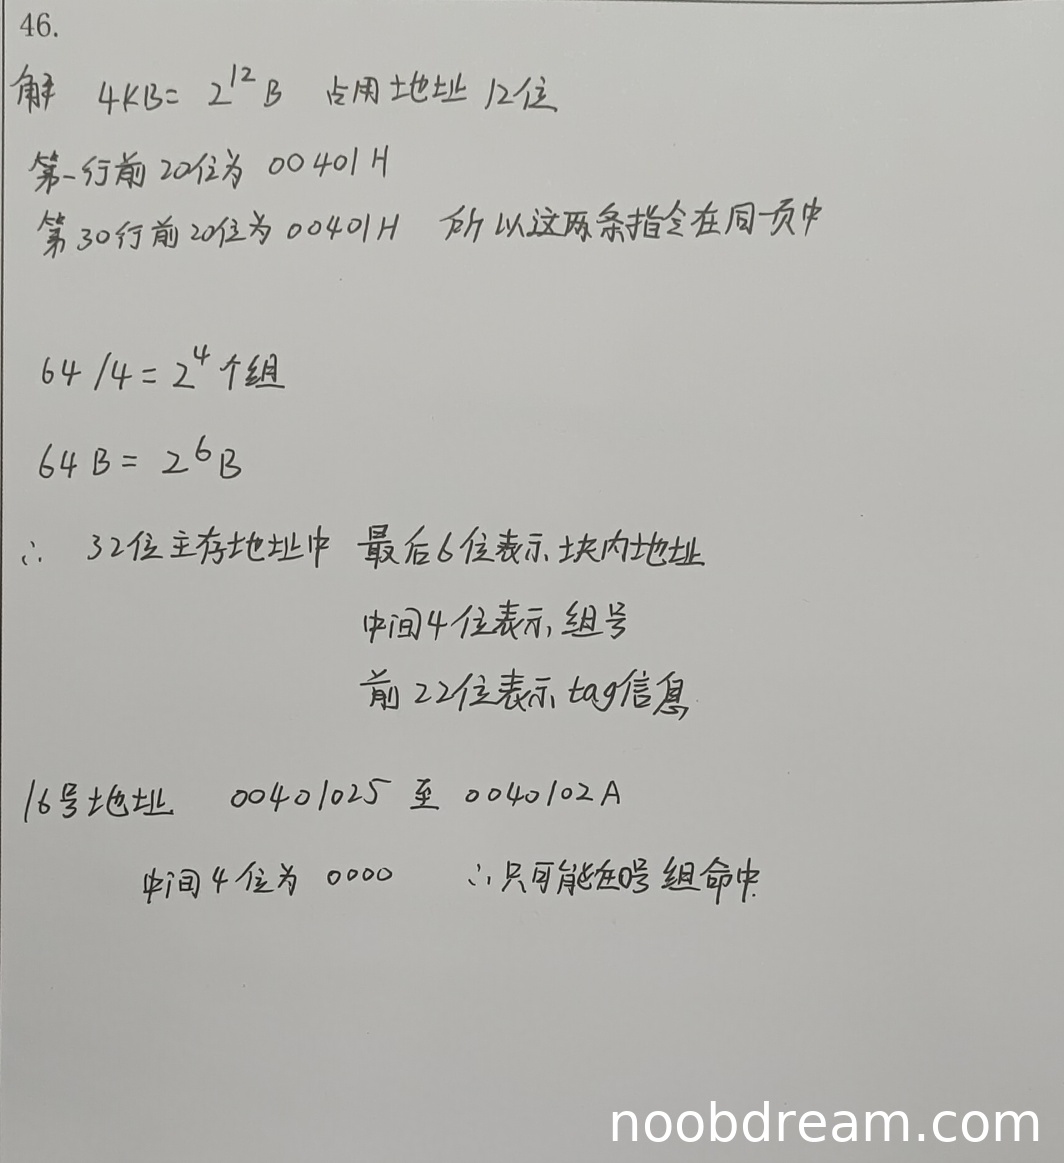 46.
解 4KB = 2^12 B 占用地址 12位
第一行前20位为 00401H
第30行前20位为00401H 所以这两条指令在同一页中
64/4 = 2^4 个组
64B = 2^6 B
∴ 32位主存地址中 最后6位表示块内地址
中间4位表示组号
前22位表示tag信息
16号地址 00401025 至 0040102A
中间4位为 0000 ∴只可能在0号组命中.
noobdream.com